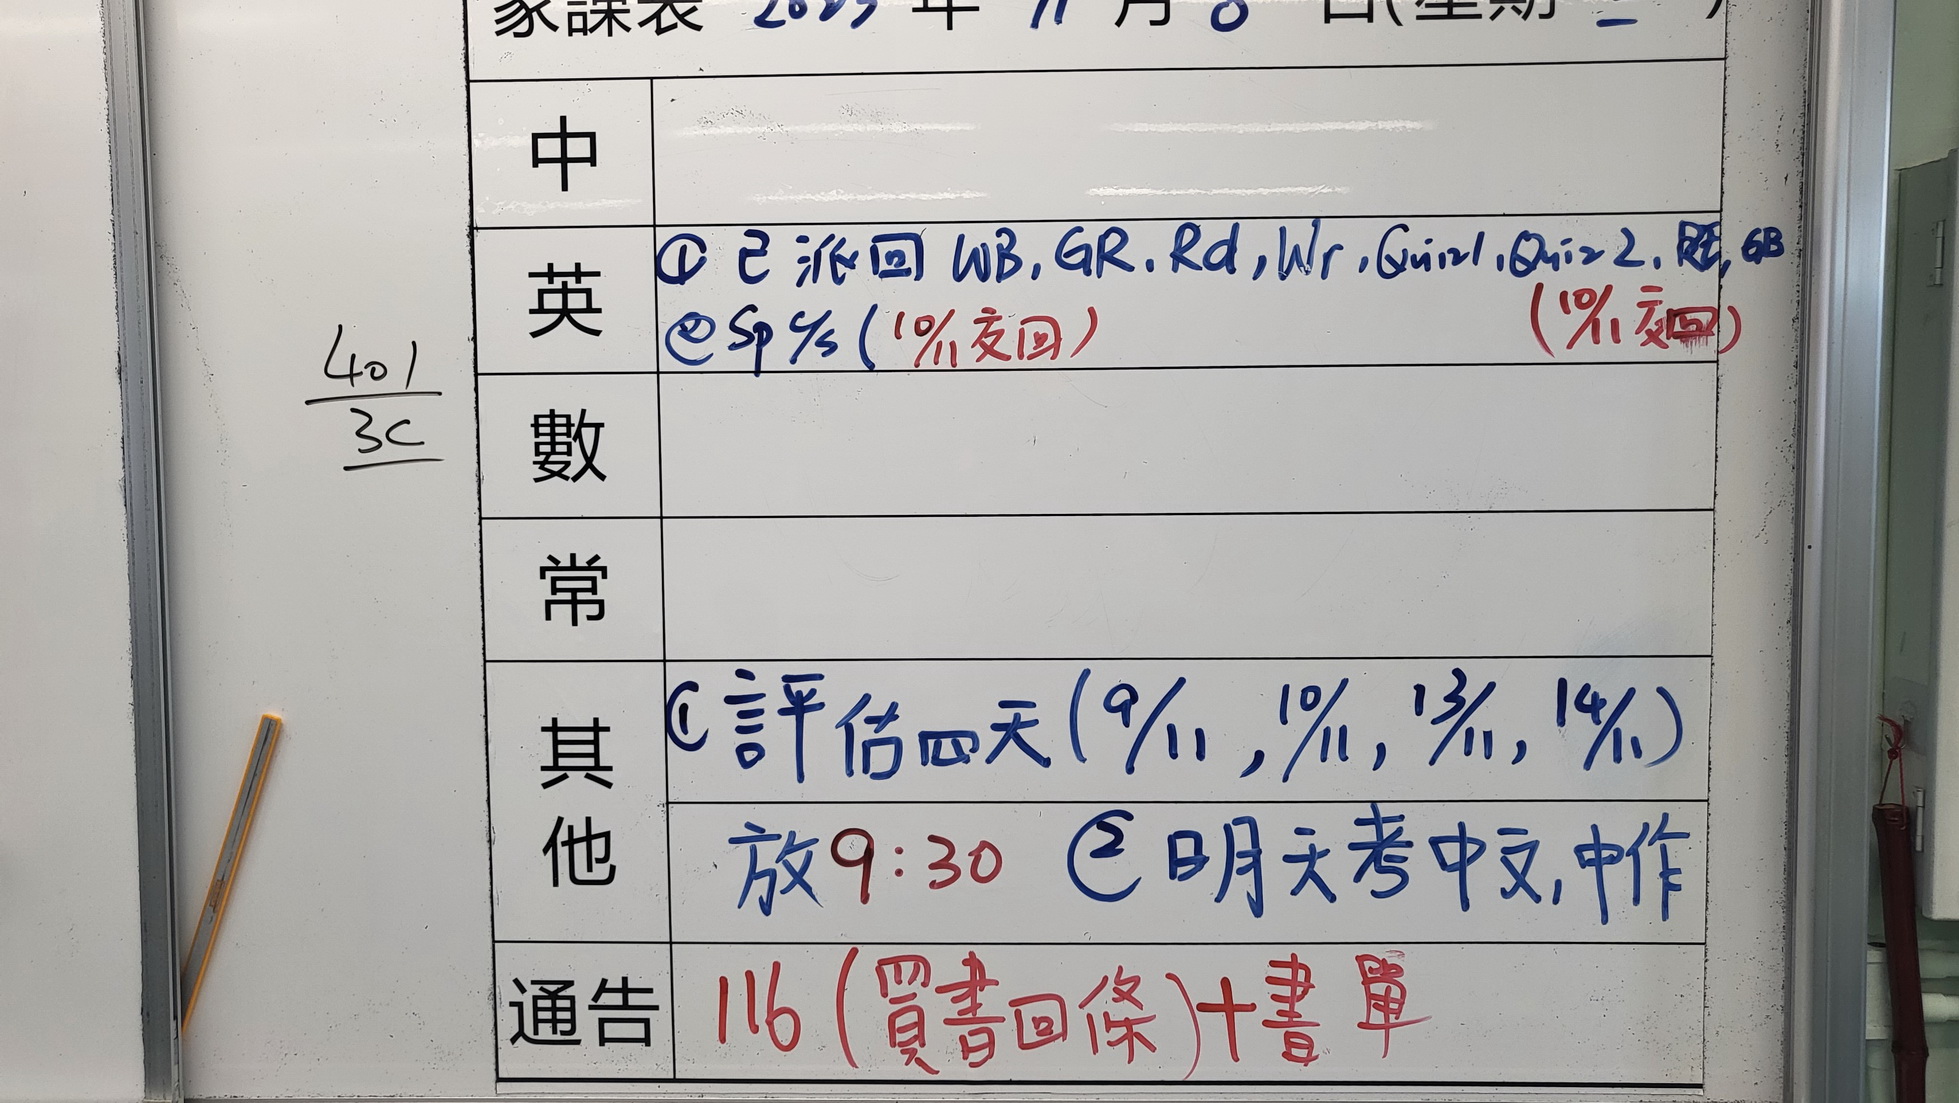 家課表 2023 年 11 月 8 日(星期 三 )
中
英
① 已派回 WB, GR, Rd, Wr, Quiz1, Quiz 2, RE, GB
(10/11 交回)
② Sp c/s (10/11 交回)
401
3C
數
常
其他
① 評估四天 (9/11, 10/11, 13/11, 14/11)
放 9:30 ② 明天考中文, 中作
通告
116 (買書回條) + 書單